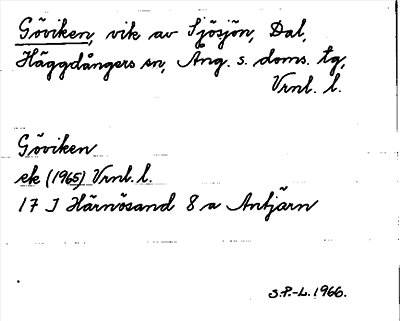 Göviken, vik av Sjösjön, Dal,
Häggdångers sn, Ång. s. doms. tg,
Vrnl. l.
Göviken
ek (1965) Vrnl. l.
17 J Härnösand 8 a Antjärn
S.P.-L. 1966.